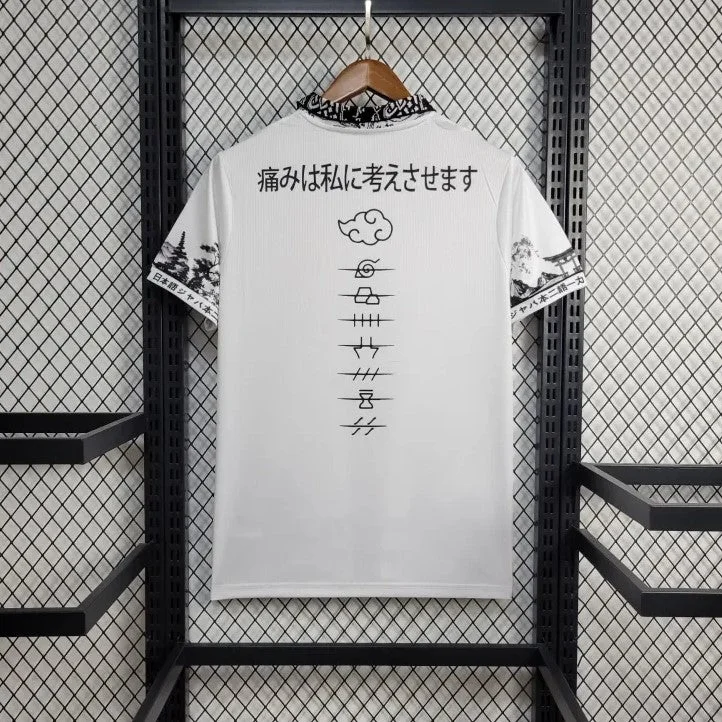 痛みは私に考えさせます
日本語ジャパ本二
ジャパ本二語一